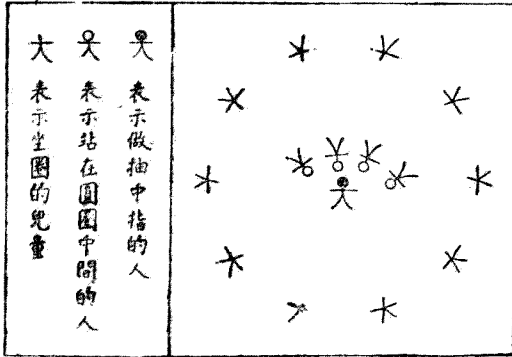 表示做抽中指的人
表示站在圓圈中間的人
表示坐圈的兒童